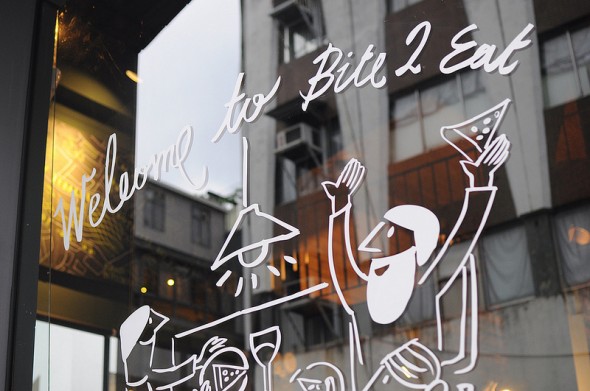 Welcome to Bite 2 Eat